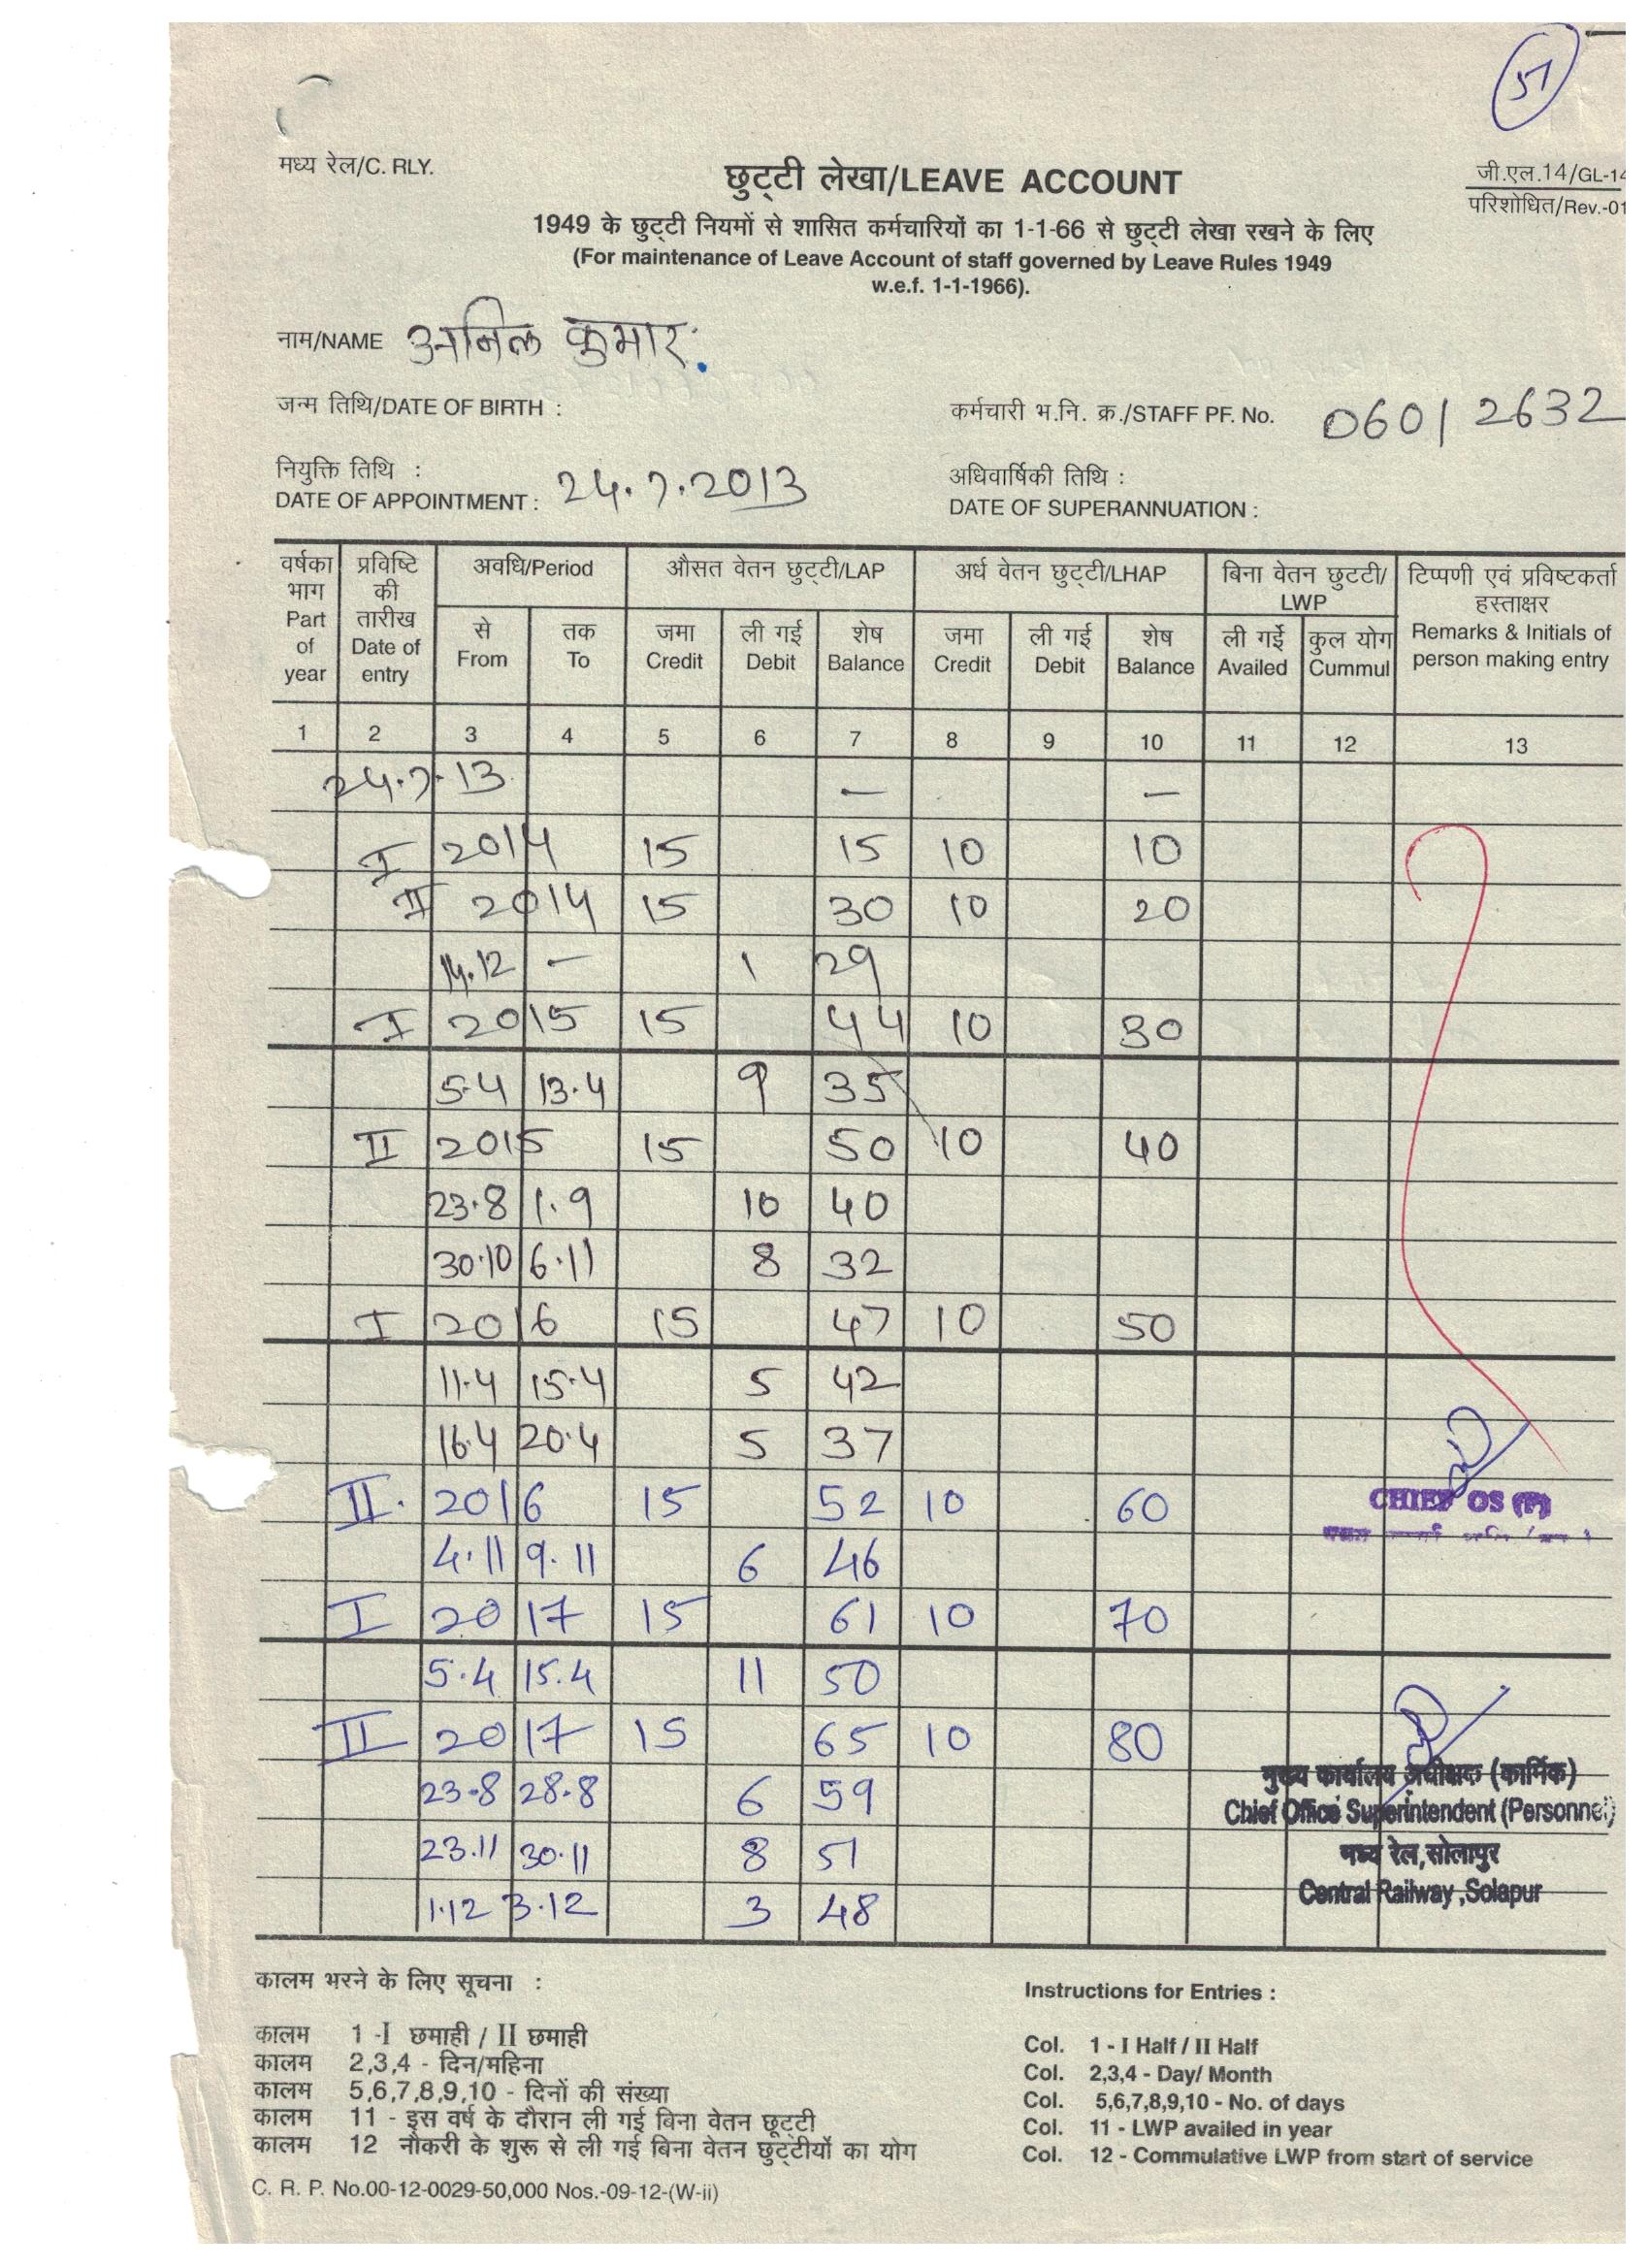 51
मध्य रेल/C. RLY.
छुट्टी लेखा/LEAVE ACCOUNT
जी.एल.14/GL-14
परिशोधित/Rev.-01
1949 के छुट्टी नियमों से शासित कर्मचारियों का 1-1-66 से छुट्टी लेखा रखने के लिए
(For maintenance of Leave Account of staff governed by Leave Rules 1949
w.e.f. 1-1-1966).
नाम/NAME अनिल कुमार.
जन्म तिथि/DATE OF BIRTH :
कर्मचारी भ.नि. क्र./STAFF PF. No. 06012632
नियुक्ति तिथि :
DATE OF APPOINTMENT : 24.7.2013
अधिवार्षिकी तिथि :
DATE OF SUPERANNUATION :
वर्षका भाग Part of year
प्रविष्टि की तारीख Date of entry
अवधि/Period
औसत वेतन छुट्टी/LAP
अर्ध वेतन छुट्टी/LHAP
बिना वेतन छुटटी/LWP
टिप्पणी एवं प्रविष्टकर्ता हस्ताक्षर Remarks & Initials of person making entry
से From
तक To
जमा Credit
ली गई Debit
शेष Balance
जमा Credit
ली गई Debit
शेष Balance
ली गई Availed
कुल योग Cummul
1 2 3 4 5 6 7 8 9 10 11 12 13
24.7.13 — —
I 2014 15 15 10 10
II 2014 15 30 10 20
14.12 — 1 29
I 2015 15 44 10 30
5.4 13.4 9 35
II 2015 15 50 10 40
23.8 1.9 10 40
30.10 6.11 8 32
I 2016 15 47 10 50
11.4 15.4 5 42
16.4 20.4 5 37
II. 2016 15 52 10 60
CHIEF OS (P)
4.11 9.11 6 46
I 2017 15 61 10 70
5.4 15.4 11 50
II 2017 15 65 10 80
मुख्य कार्यालय अधीक्षक (कार्मिक)
23.8 28.8 6 59
Chief Office Superintendent (Personnel)
23.11 30.11 8 51
मध्य रेल,सोलापुर
1.12 3.12 3 48
Central Railway ,Solapur
कालम भरने के लिए सूचना :
कालम 1 -I छमाही / II छमाही
कालम 2,3,4 - दिन/महिना
कालम 5,6,7,8,9,10 - दिनों की संख्या
कालम 11 - इस वर्ष के दौरान ली गई बिना वेतन छूट्टी
कालम 12 नौकरी के शुरू से ली गई बिना वेतन छुट्टीयों का योग
Instructions for Entries :
Col. 1 - I Half / II Half
Col. 2,3,4 - Day/ Month
Col. 5,6,7,8,9,10 - No. of days
Col. 11 - LWP availed in year
Col. 12 - Commulative LWP from start of service
C. R. P. No.00-12-0029-50,000 Nos.-09-12-(W-ii)